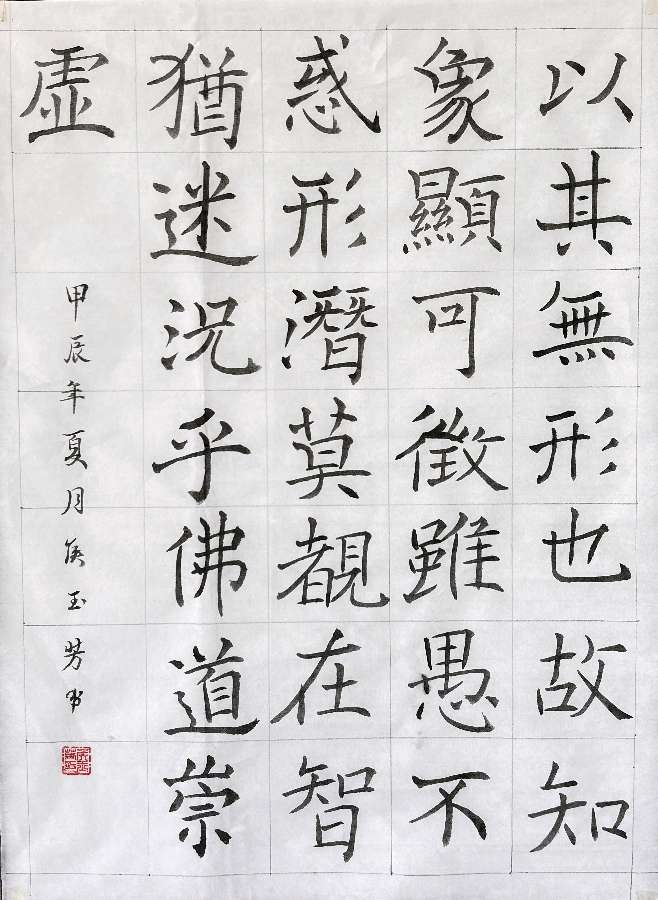 以其無形也故知
象顯可徵雖愚不
惑形潛莫覩在智
猶迷況乎佛道崇
虛
甲辰年夏月侯玉芳书